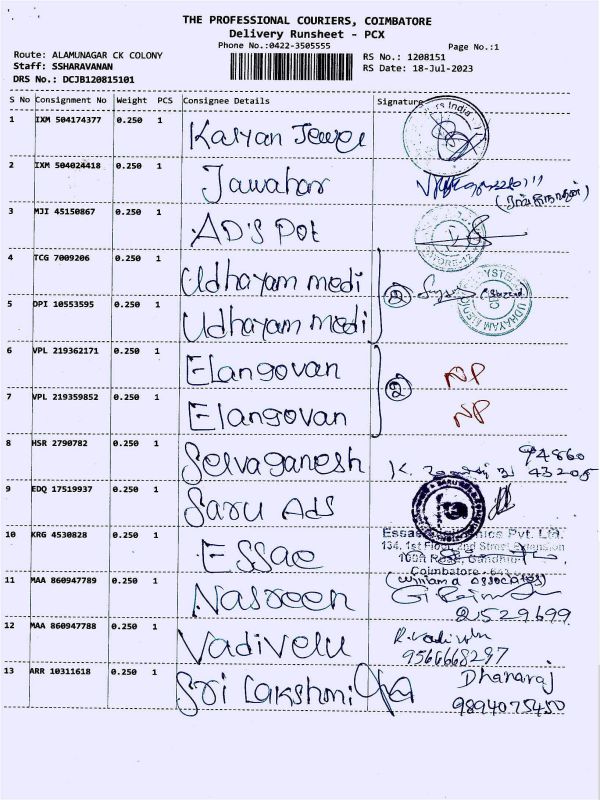 THE PROFESSIONAL COURIERS, COIMBATORE
Delivery Runsheet - PCX
Phone No.:0422-3505555
Page No.:1
Route: ALAMUNAGAR CK COLONY
Staff: SSHARAVANAN
DRS No.: DCJB120815101
RS No.: 1208151
RS Date: 18-Jul-2023
S No Consignment No Weight PCS Consignee Details Signature
1 IXM 504174377 0.250 1 Kalyan Jewel
2 IXM 504024418 0.250 1 Jawahar
3 MJI 45150867 0.250 1 AD'S Pot
4 TCG 7009206 0.250 1 Udhayam medi
5 DPI 10553595 0.250 1 Udhayam medi
②
6 VPL 219362171 0.250 1 Elangovan NP
7 VPL 219359852 0.250 1 Elangovan NP
②
8 HSR 2790782 0.250 1 Selvaganesh 94860
43205
9 EDQ 17519937 0.250 1 Saru Ads
10 KRG 4530828 0.250 1 Essae
Pvt. Ltd.
134, 1st Floor, 2nd Street Extension
100ft Road, Gandhi
Coimbatore
11 MAA 860947789 0.250 1 Nasreen
21529699
12 MAA 860947788 0.250 1 Vadivelu R.Vadivelu
9566668297
13 ARR 10311618 0.250 1 Sri Lakshmi Dhanaraj
9894075450